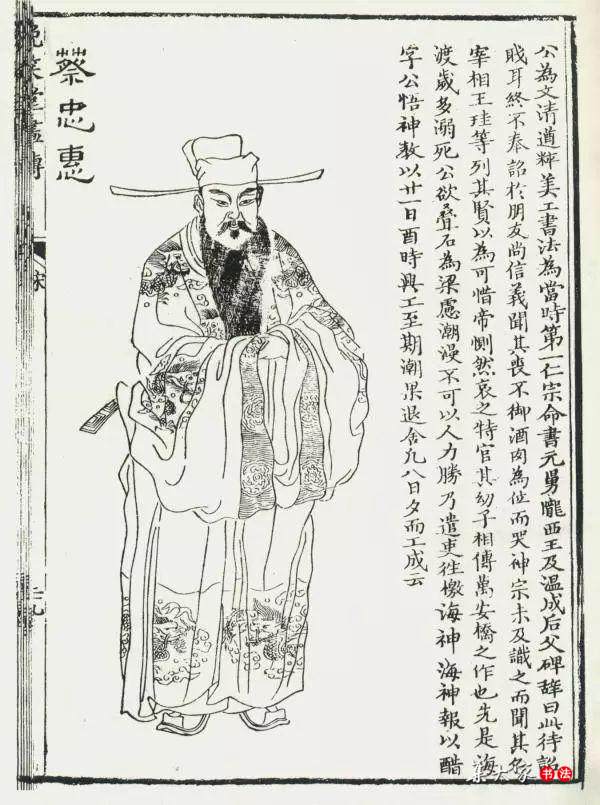 公為文清遒粹美工書法為當時第一仁宗命書元舅隴西王及温成后父碑辭曰此待詔
職耳終不奉詔於朋友尚信義聞其喪不御酒肉為位而哭神宗未及識之而聞其名
宰相王珪等列其賢以為可惜帝惻然哀之特官其幼子相傳萬安橋之作也先是海
渡歲多溺死公欲叠石為梁慮潮漫不可以人力勝乃遣吏往檄海神海神報以醋
字公悟神教以廿一日酉時興工至期潮果退舍凡八日夕而工成云
蔡忠惠
晚笑堂畫傳
书法